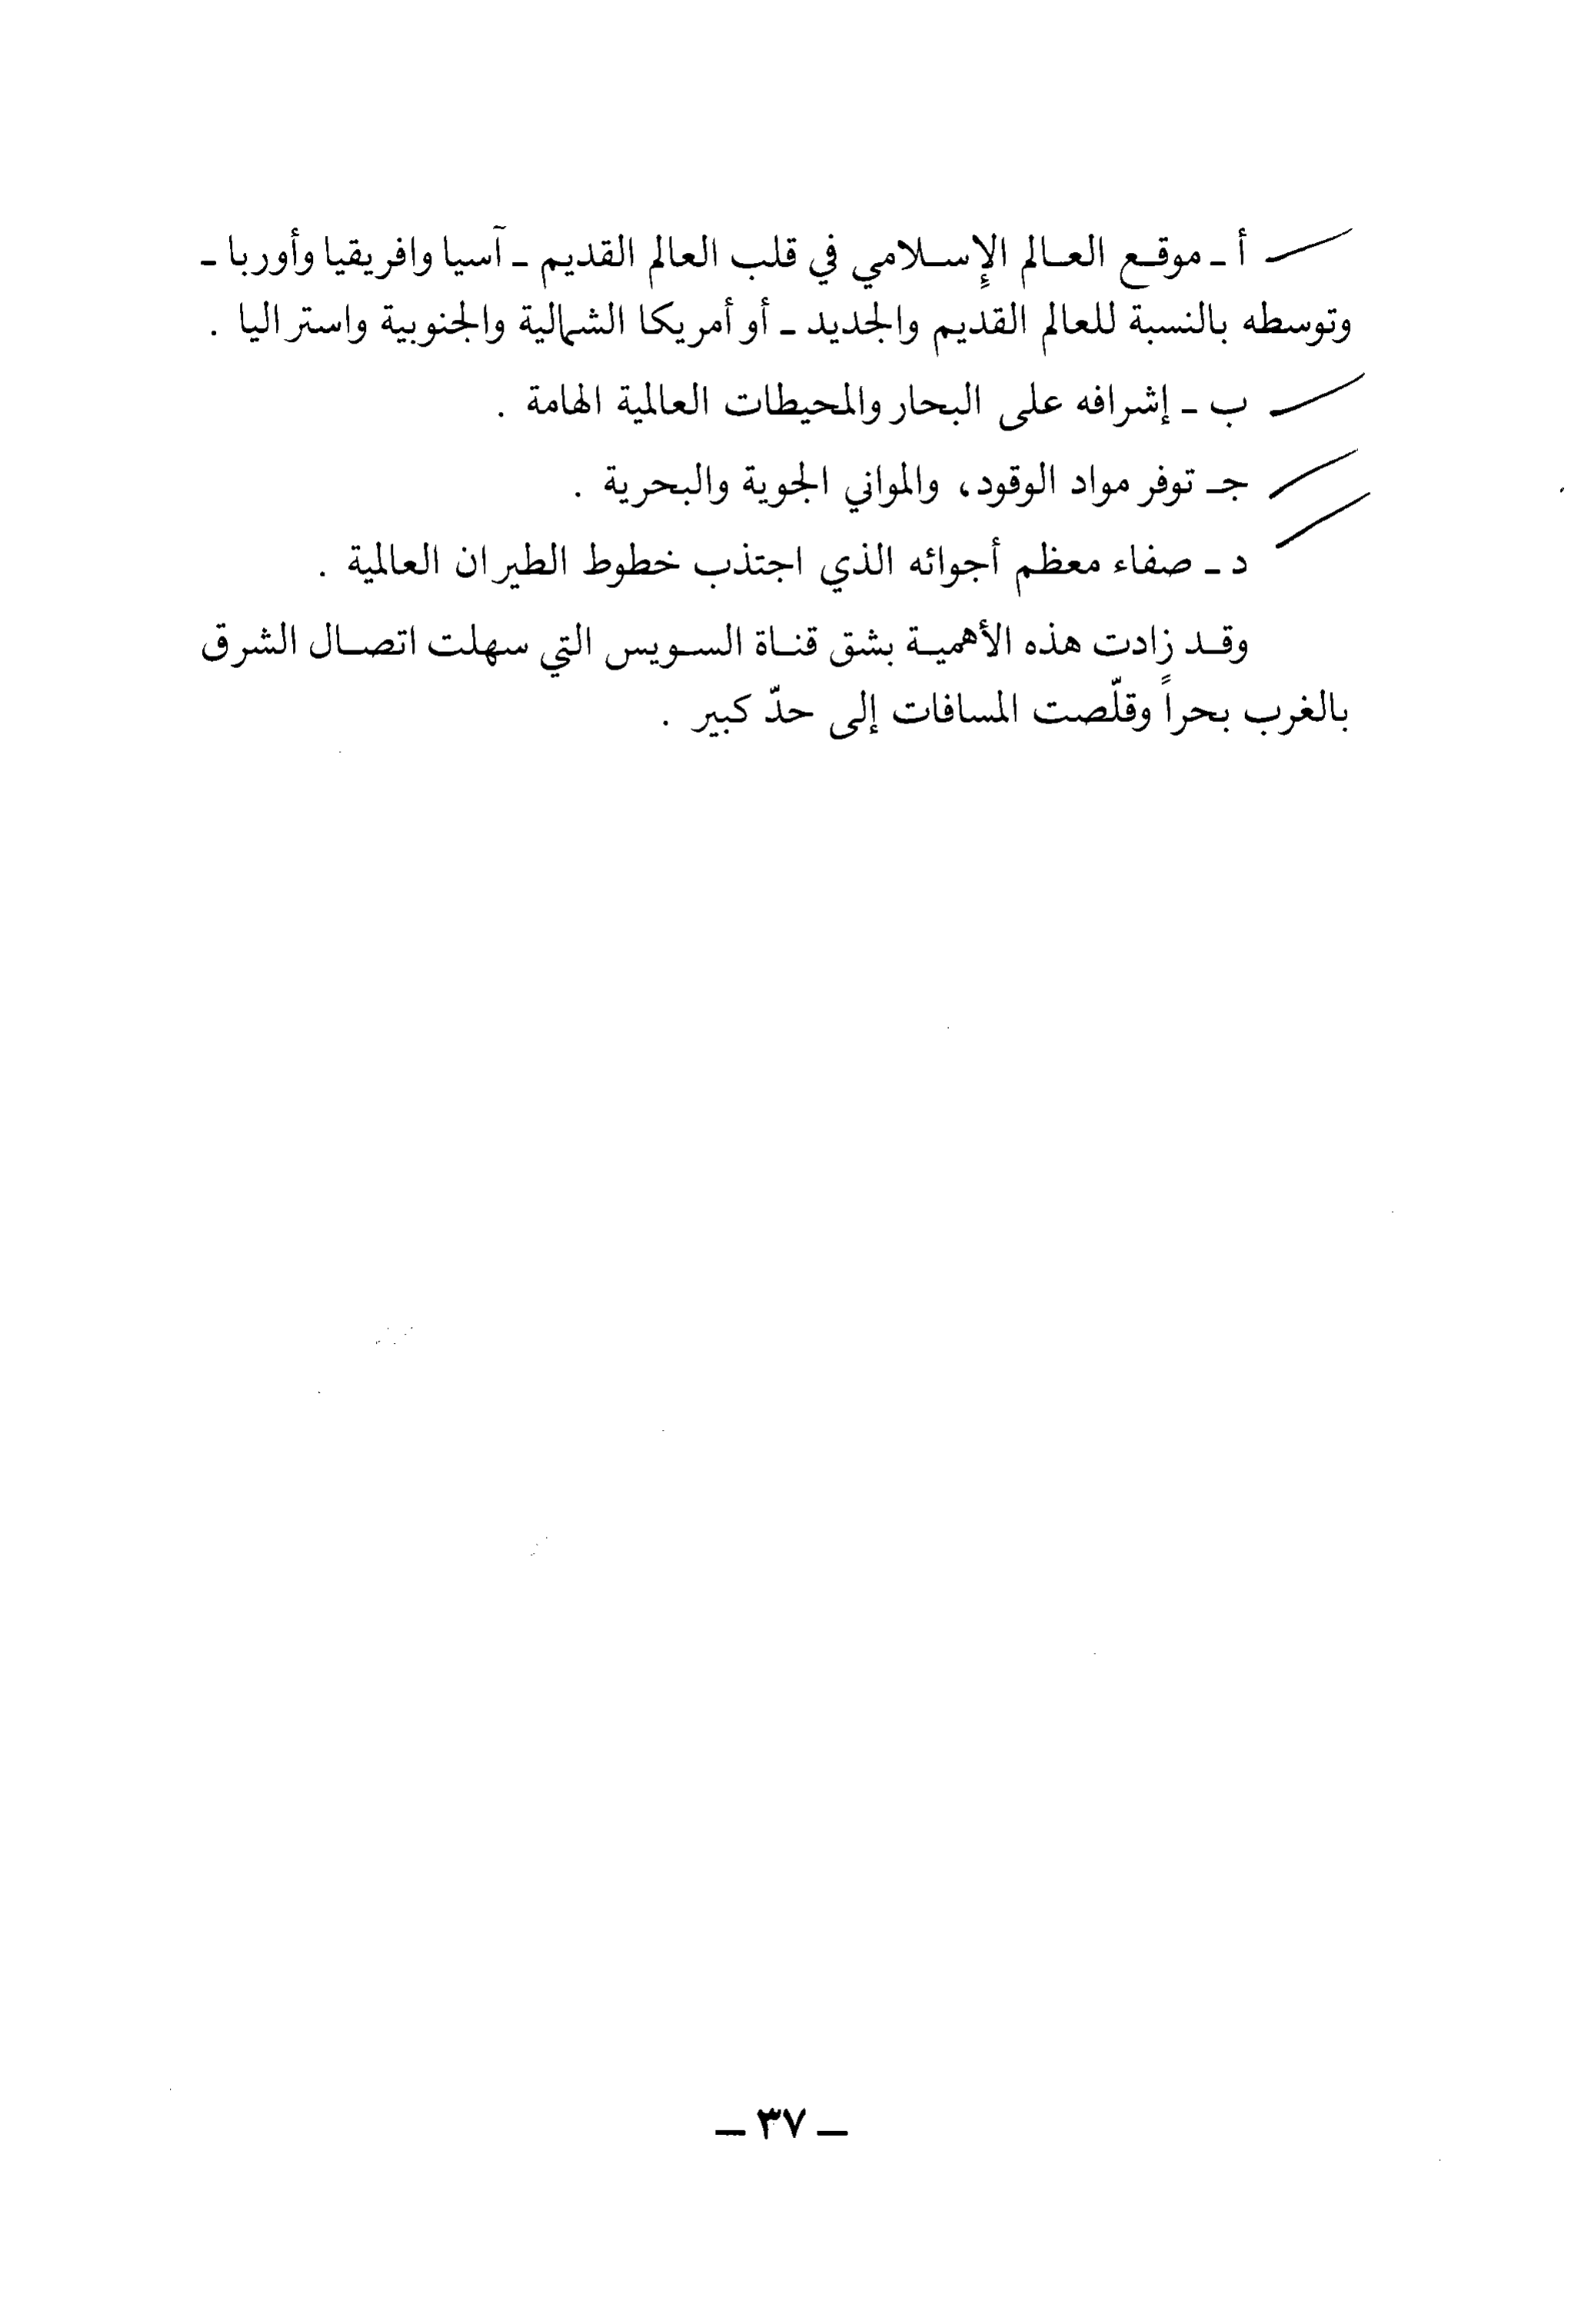 أ ـ موقع العالم الإسلامي في قلب العالم القديم ـ آسيا وافريقيا وأوربا ـ
وتوسطه بالنسبة للعالم القديم والجديد ـ أو أمريكا الشمالية والجنوبية واستراليا .
ب ـ إشرافه على البحار والمحيطات العالمية الهامة .
جـ توفر مواد الوقود، والمواني الجوية والبحرية .
د ـ صفاء معظم أجوائه الذي اجتذب خطوط الطيران العالمية .
وقد زادت هذه الأهمية بشق قناة السويس التي سهلت اتصال الشرق
بالغرب بحراً وقلّصت المسافات إلى حدّ كبير .
ـ ٣٧ ـ